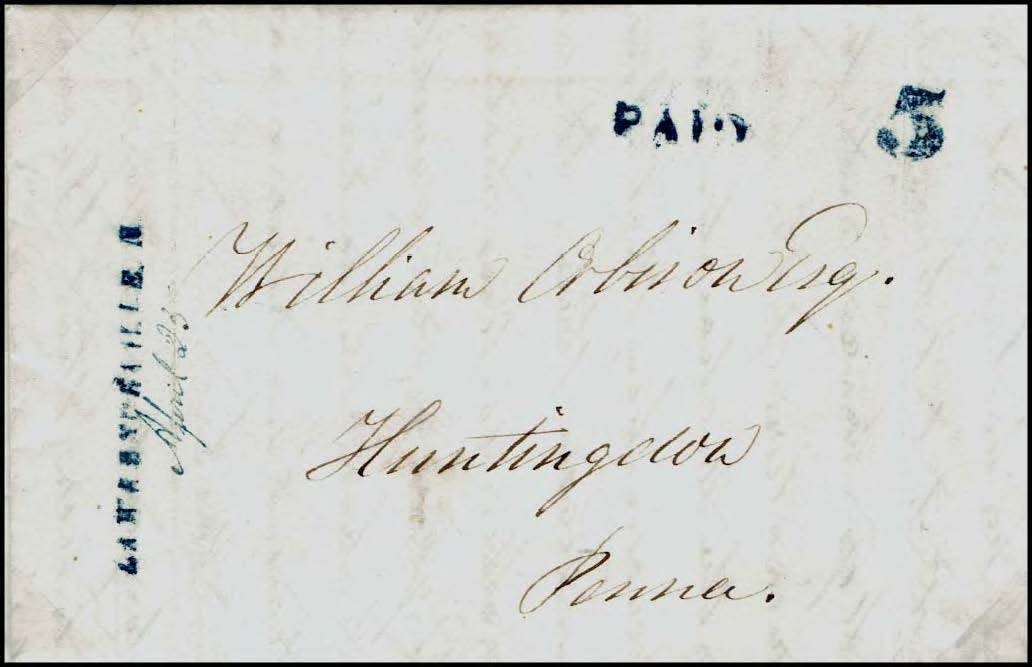 PAID 5
April 23
William Orbison Esq.
Huntingdon
Penna.